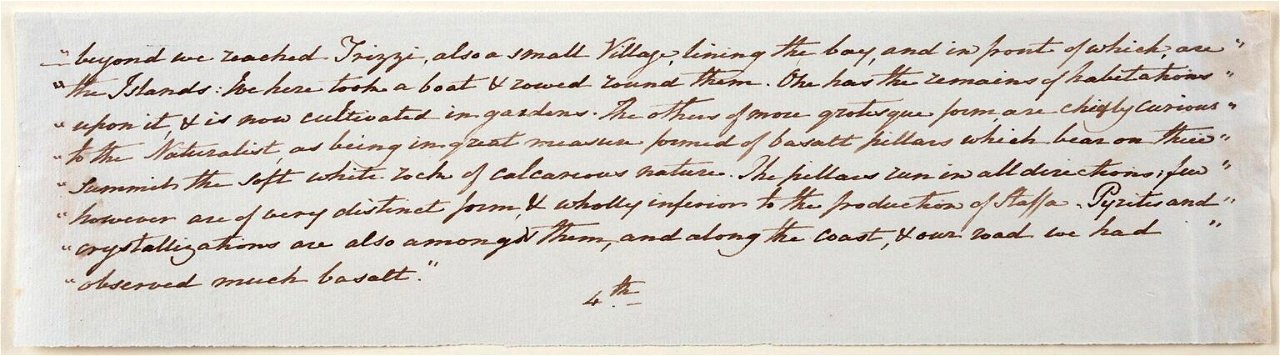 " beyond we reached Trizzi, also a small Village, lining the bay, and in front of which, are "
" the Islands: We here took a boat & rowed round them. One has the remains of habitations "
" upon it, & is now cultivated in gardens. The others of more grotesque form, are chiefly curious "
" to the Naturalist, as being in great measure formed of basalt pillars which bear on their "
" Summits the soft white rock of calcareous nature. The pillars run in all directions; few "
" however are of very distinct form, & wholly inferior to the production of Staffa. Pyrites and "
" crystallizations are also amongst them, and along the coast, & our road we had "
" observed much basalt."
4th